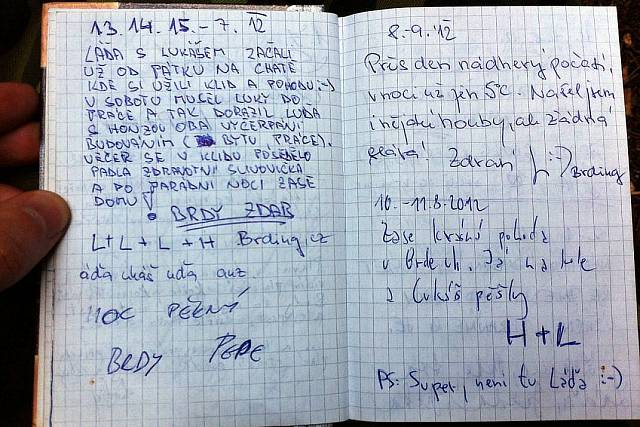 13. 14. 15. - 7. 12
LÁĎA S LUKÁŠEM ZAČALI
UŽ OD PÁTKU NA CHATĚ
KDE SI UŽILI KLID A POHODU :-)
V SOBOTU MUSEL LUKY DO
PRÁCE A TAK DORAZIL LUĎA
S HONZOU OBA VYČERPANÍ
BUDOVÁNÍM ( BYTU, PRÁCE).
VEČER SE V KLIDU POSEDĚLO
PADLA ZDRAVOTNÍ SLIVOVIČKA
A PO PARÁDNÍ NOCI ZASE
DOMU!
BRDY ZDAR
L+L+L+H Brding cz
áďa ukáš uďa
MOC PĚKNÝ
BRDY PEPE
8.-9. 12
Přes den nádherný počasí,
v noci už jen 5°C. Našel jsem
i nějaký houby, ale žádná
sláva! Zdraví H :-) Brding
10.-11.8.2012
Zase krásná pohoda
v Brdech. Já na kole
a Lukáš pěšky
H + L
PS: Super, není tu Láďa :-)